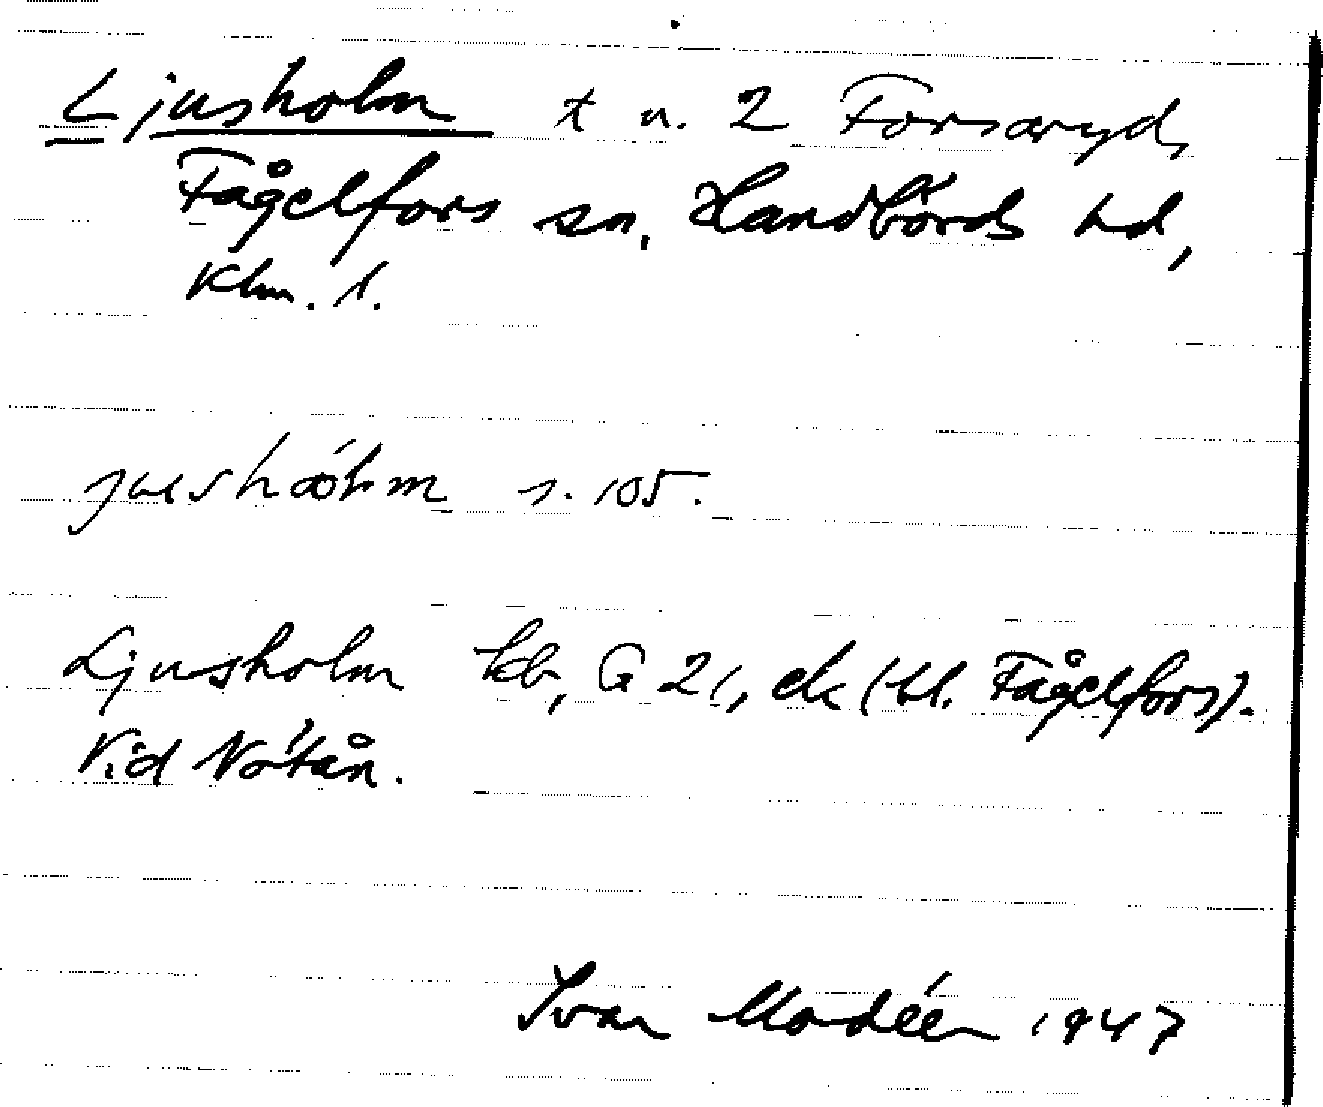 Ljusholm t u. 2 Forsaryd,
Fågelfors sn, Handbörds hd,
Klm. l.
s. 105.
Ljusholm kb, G 21, ek (bl. Fågelfors).
Vid Nötån.
Ivar Modéer 1947